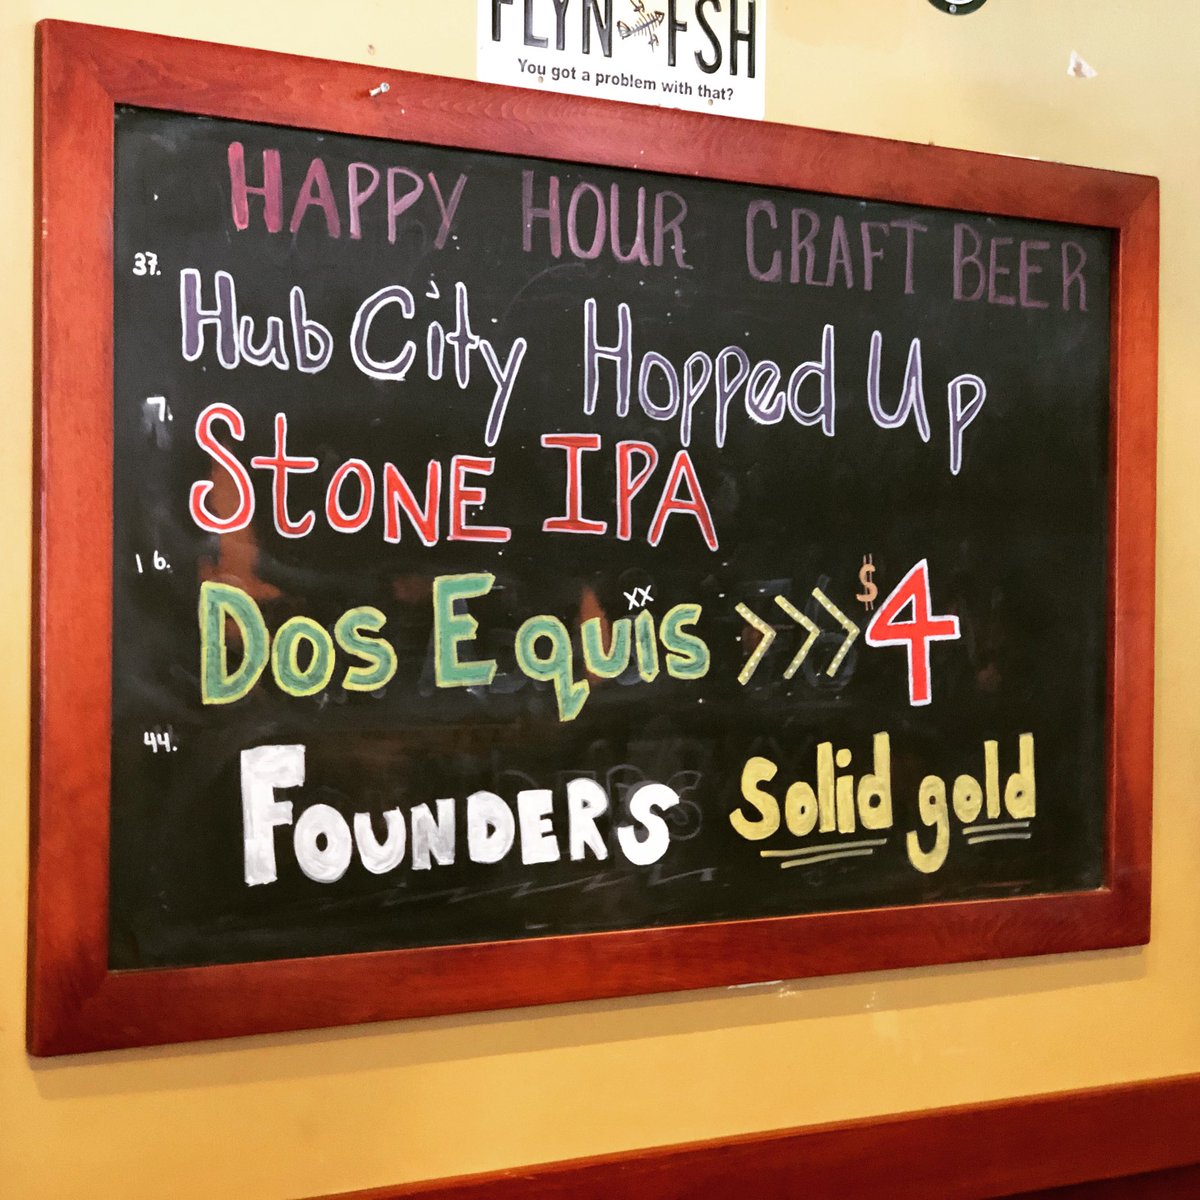 FLYN FSH
You got a problem with that?
HAPPY HOUR CRAFT BEER
37.
Hub City Hopped Up
7.
STONE IPA
16.
XX
Dos Equis >>> $4
44.
FOUNDERS Solid gold